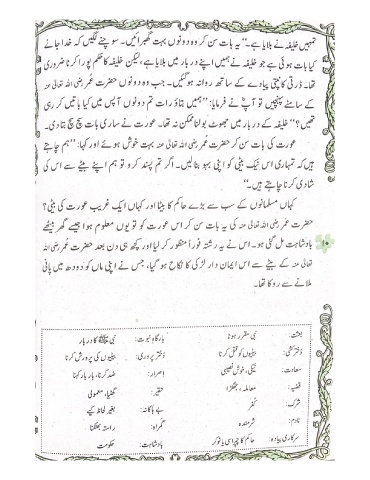 تمہیں خلیفہ نے بلایا ہے۔“ یہ بات سن کر وہ دونوں بہت گھبرائیں۔ سوچنے لگیں کہ خدا جانے
کیا بات ہوئی ہے جو خلیفہ نے ہمیں اپنے دربار میں بلایا ہے، لیکن خلیفہ کا حکم پورا کرنا ضروری
تھا۔ ڈرتی کانپتی پیادے کے ساتھ روانہ ہو گئیں۔ جب وہ دونوں حضرت عمر رضی اللہ تعالیٰ عنہ
کے سامنے پہنچیں تو آپؓ نے فرمایا: ”ہمیں بتاؤ رات تم دونوں آپس میں کیا باتیں کر رہی
تھیں؟“ خلیفہ کے دربار میں جھوٹ بولنا ممکن نہ تھا۔ عورت نے ساری بات سچ سچ بتا دی۔
عورت کی بات سن کر حضرت عمر رضی اللہ تعالیٰ عنہ بہت خوش ہوئے اور کہا: ”ہم چاہتے
ہیں کہ تمہاری اس نیک بیٹی کو اپنی بہو بنا لیں۔ اگر تم پسند کرو تو ہم اپنے بیٹے سے اس کی
شادی کرنا چاہتے ہیں۔“
کہاں مسلمانوں کے سب سے بڑے حاکم کا بیٹا اور کہاں ایک غریب عورت کی بیٹی؟
حضرت عمر رضی اللہ تعالیٰ عنہ کی یہ بات سن کر اس عورت کو تو یوں معلوم ہوا جیسے گھر بیٹھے
بادشاہت مل گئی ہو۔ اس نے یہ رشتہ فوراً منظور کر لیا اور کچھ ہی دن بعد حضرت عمر رضی اللہ
تعالیٰ عنہ کے بیٹے سے اس ایمان دار لڑکی کا نکاح ہو گیا، جس نے اپنی ماں کو دودھ میں پانی
ملانے سے روکا تھا۔
۱۰
بعثت: نبی مقرر ہونا بارگاہِ نبوت: نبی ﷺ کا دربار
دختر کشی: بیٹیوں کو قتل کرنا دختر پروری: بیٹیوں کی پرورش کرنا
سعادت: نیکی، خوش نصیبی اصرار: ضد، بار بار کہنا
قضیہ: معاملہ، جھگڑا حقیر: گھٹیا، معمولی
شرک: کفر بے باکانہ: بغیر لحاظ کیے
نادم: شرمندہ گمراہ: راستہ بھٹکنا
سرکاری پیادہ: حاکم کا چپراسی یا نوکر بادشاہت: حکومت